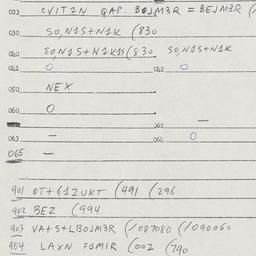 023 EVITIN QAP. BOJM3R = BEJM3R (/
030 50,N1S+N1K (830
040 50N1S+N1K1S(830 50,N1S+N1K
041 O 042 O
050 NEX
060 O
062 —
063 — 064 O
065 —
901 OT+G1ZUKT (491 (296
902 BEZ (994
903 VA+S+LBOJM3R (/087080 (/090060
904 LAXN F1MIR (002 (790